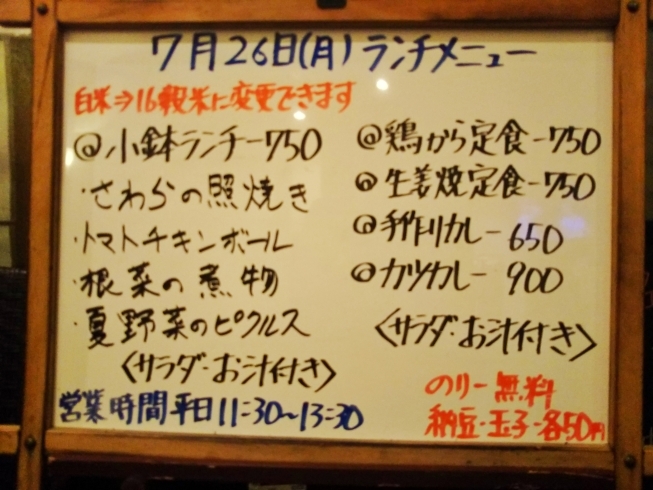 7月26日(月)ランチメニュー
白米⇒16穀米に変更できます
@小鉢ランチー750
・さわらの照焼き
・トマトチキンボール
・根菜の煮物
・夏野菜のピクルス
〈サラダ・お汁付き〉
営業時間平日11:30〜13:30
@鶏から定食-750
@生姜焼定食-750
@手作りカレー 650
@カツカレー 900
〈サラダ・お汁付き〉
のりー無料
納豆・玉子-各50円